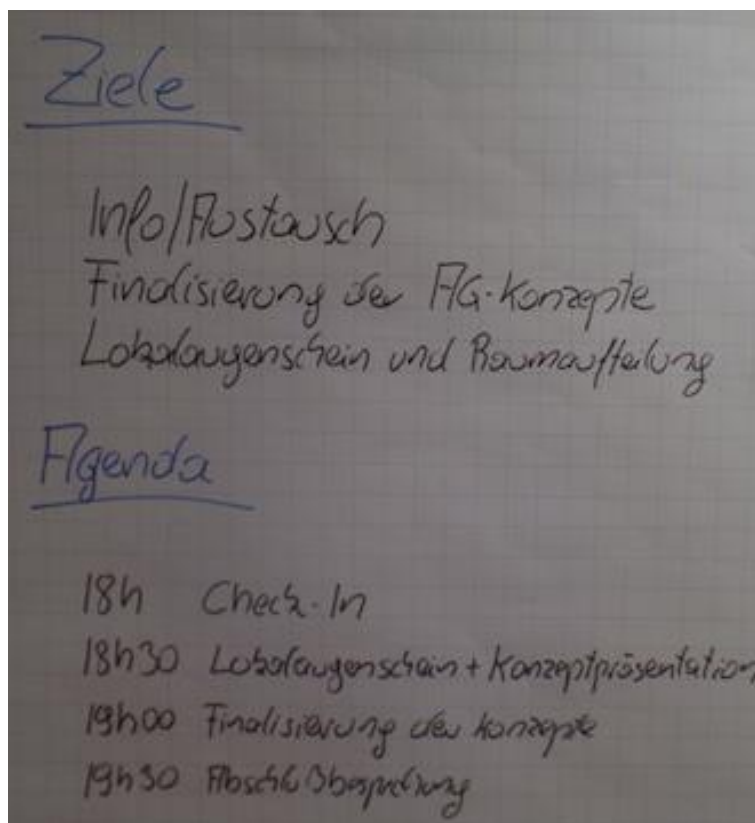 Ziele
Info/Austausch
Finalisierung der AG-Konzepte
Lokalaugenschein und Raumaufteilung
Agenda
18h Check-In
18h30 Lokalaugenschein + Konzeptpräsentation
19h00 Finalisierung der Konzepte
19h30 Abschlußbesprechung